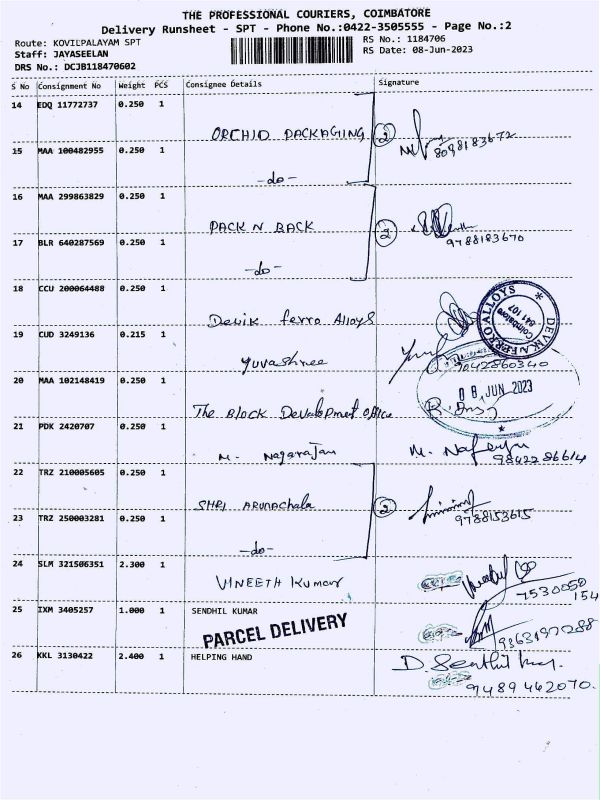 THE PROFESSIONAL COURIERS, COIMBATORE
Delivery Runsheet - SPT - Phone No.:0422-3505555 - Page No.:2
Route: KOVILPALAYAM SPT
Staff: JAYASEELAN
DRS No.: DCJB118470602
RS No.: 1184706
RS Date: 08-Jun-2023
S No Consignment No Weight PCS Consignee Details Signature
14 EDQ 11772737 0.250 1
ORCHID PACKAGING 2 8098183672
15 MAA 100482955 0.250 1
-do-
16 MAA 299863829 0.250 1
PACK N BACK 2 9788183670
17 BLR 640287569 0.250 1
-do-
18 CCU 200064488 0.250 1
Devik ferro Alloys
DEVIK FERRO ALLOYS Coimbatore 641 107
19 CUD 3249136 0.215 1
Yuvashree 9042860340
20 MAA 102148419 0.250 1
08 JUN 2023
The Block Development Office
21 PDK 2420707 0.250 1
M. Nagarajan 9842286614
22 TRZ 210005605 0.250 1
SHRI ARUNACHala 2 9788153615
23 TRZ 250003281 0.250 1
-do-
24 SLM 321506351 2.300 1
VINEETH Kumar 7530050154
25 IXM 3405257 1.000 1 SENDHIL KUMAR
PARCEL DELIVERY 9363197288
26 KKL 3130422 2.400 1 HELPING HAND
D. Senthil
9489442070.